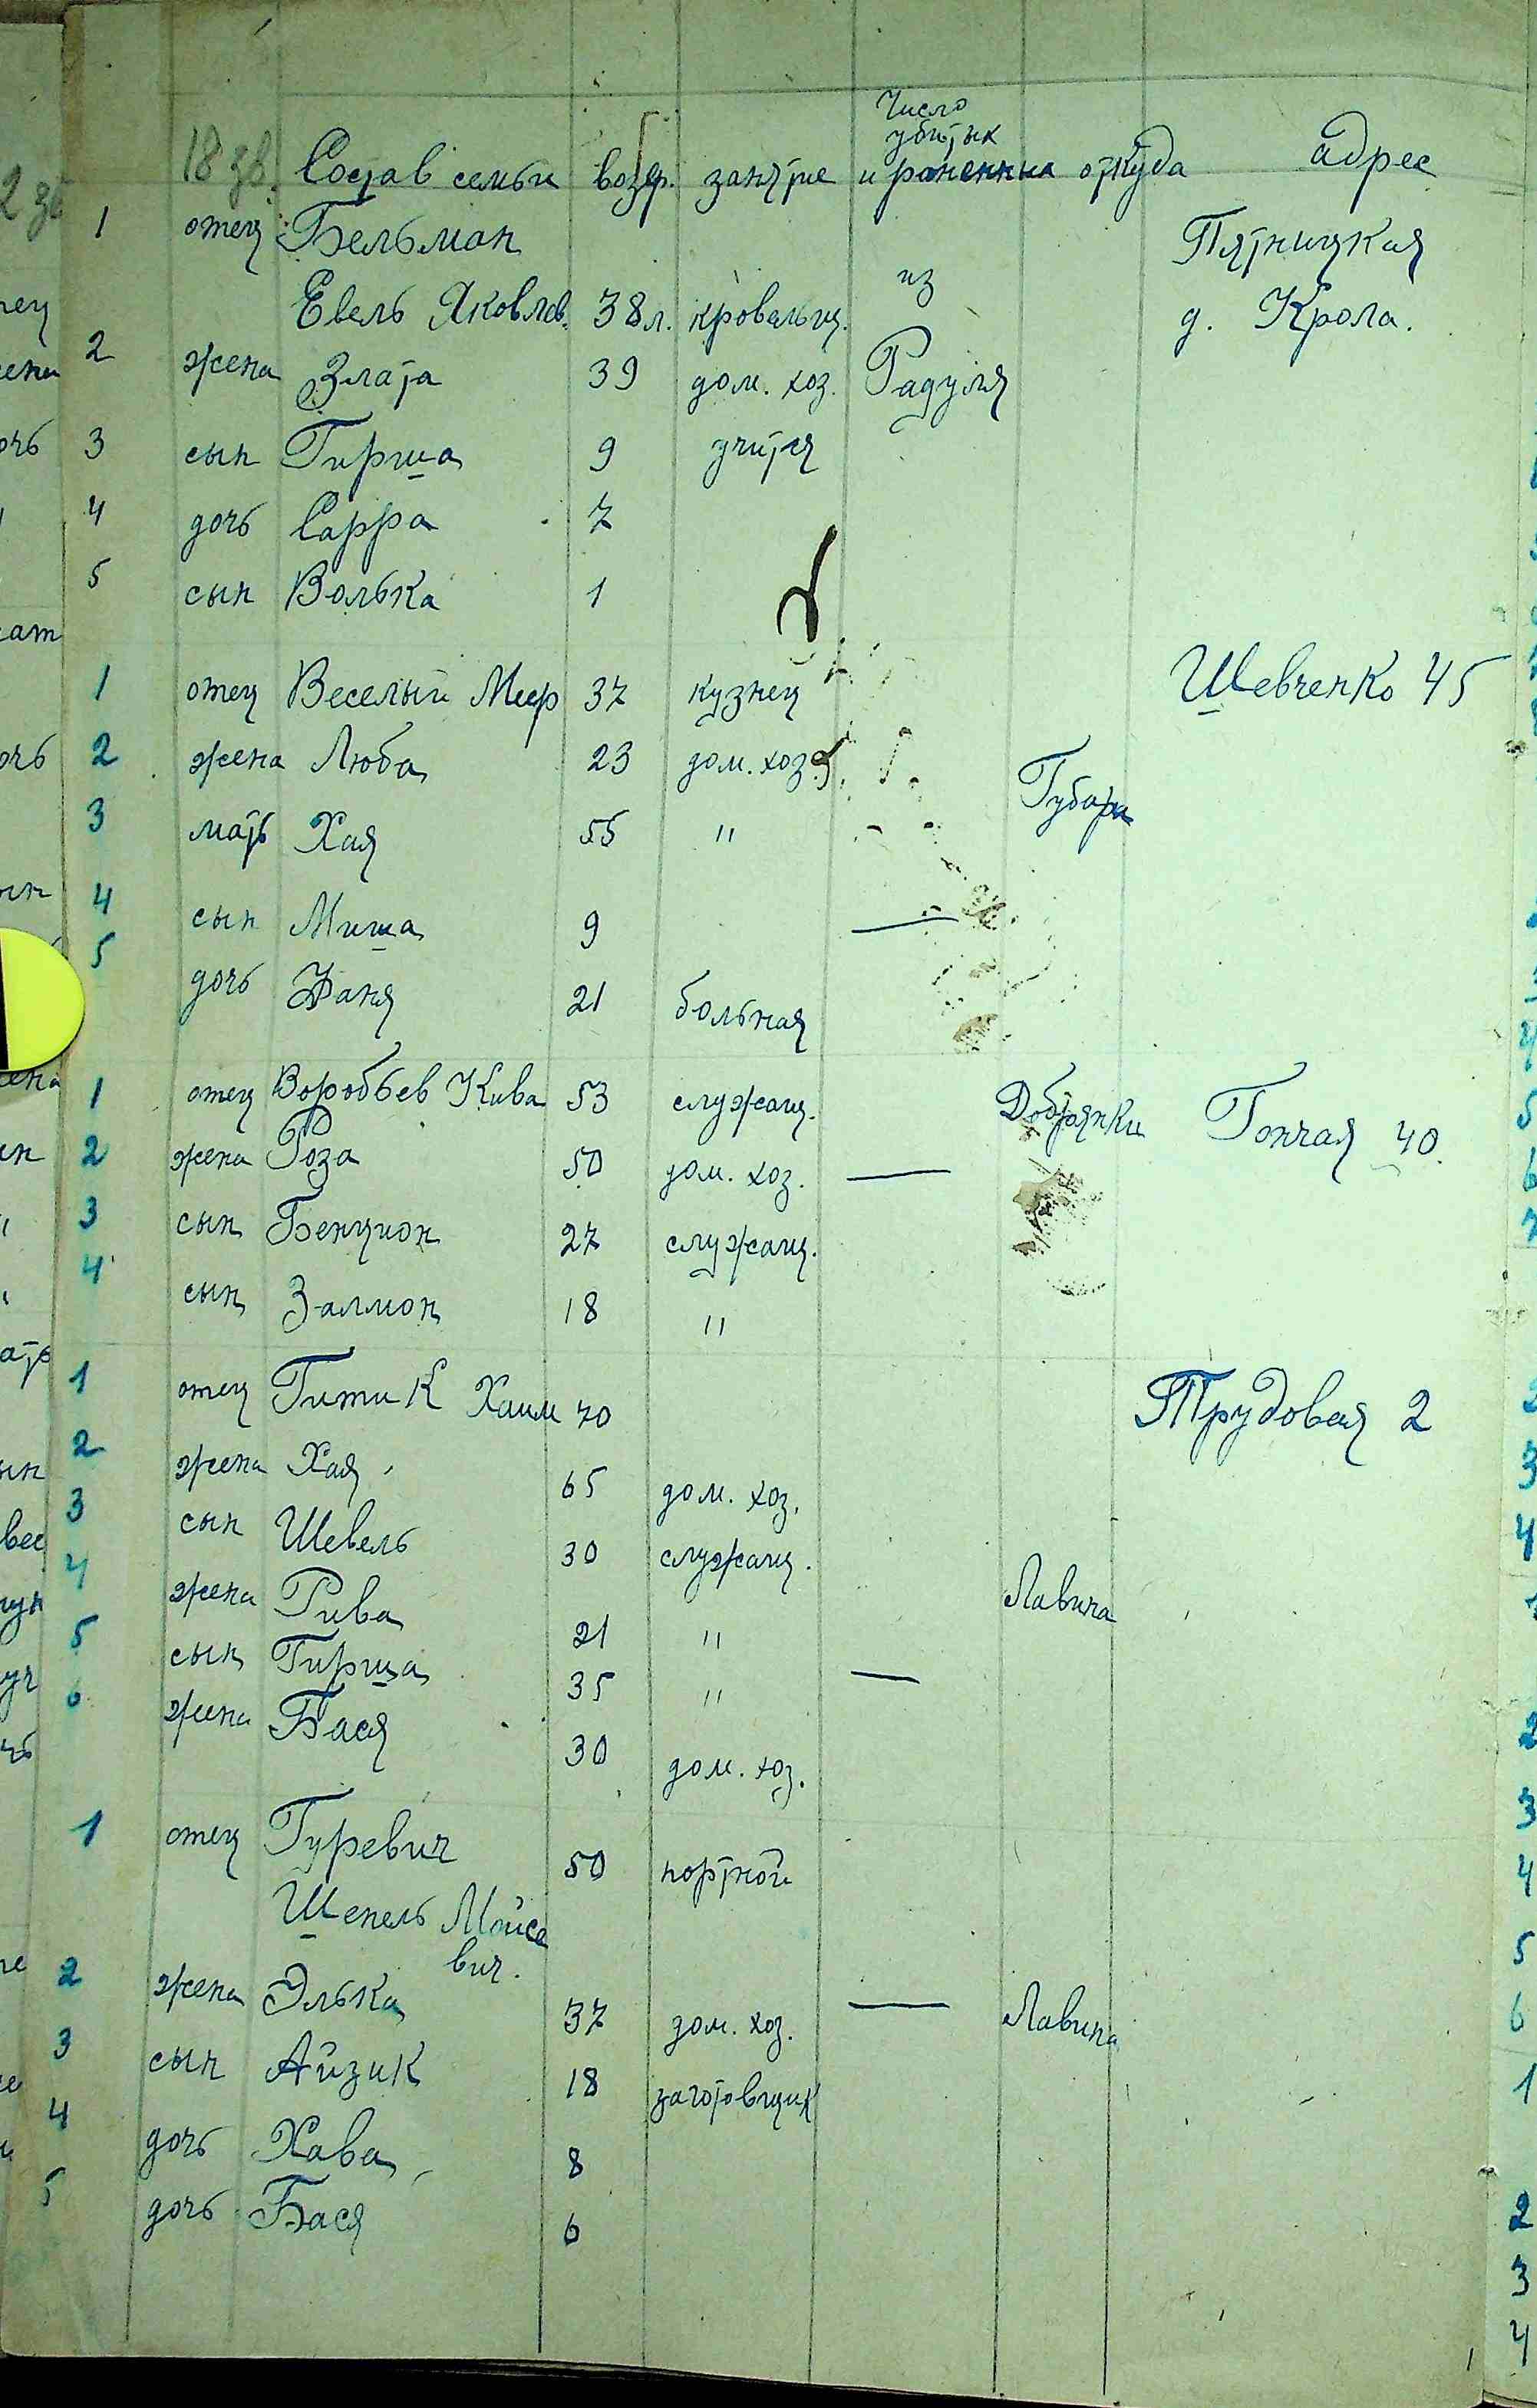 Число
убитых
18 зв. Состав семьи возр. занятие и раненных откуда адрес
1 отец Бельман Пятницкая
Евель Яковлев. 38 л. кровельщ. из д. Крола.
2 жена Злата 39 дом. хоз. Радуля
3 сын Гирша 9 учится
4 дочь Сарра 7
5 сын Волька 1
1 отец Веселый Меер 37 кузнец Шевченко 45
2 жена Люба 23 дом. хоз.
3 мать Хая 55 " Губара
4 сын Миша 9 —
5 дочь Фаня 21 больная
1 отец Воробьев Кива 53 служащ. Добрянки Гончая 40.
2 жена Роза 50 дом. хоз. —
3 сын Бенцион 27 служащ.
4 сын Залмон 18 "
1 отец Гитик Хаим 70 Трудовая 2
2 жена Хая 65 дом. хоз.
3 сын Шевель 30 служащ.
4 жена Рива 21 " Лавича
5 сын Гирша 35 " —
6 жена Бася 30 дом. хоз.
1 отец Гуревич 50 портной
Шепель Мойсе
вич.
2 жена Элька 37 дом. хоз. — Лавича
3 сын Айзик 18 заготовщик
4 дочь Хава 8
5 дочь Бася 6